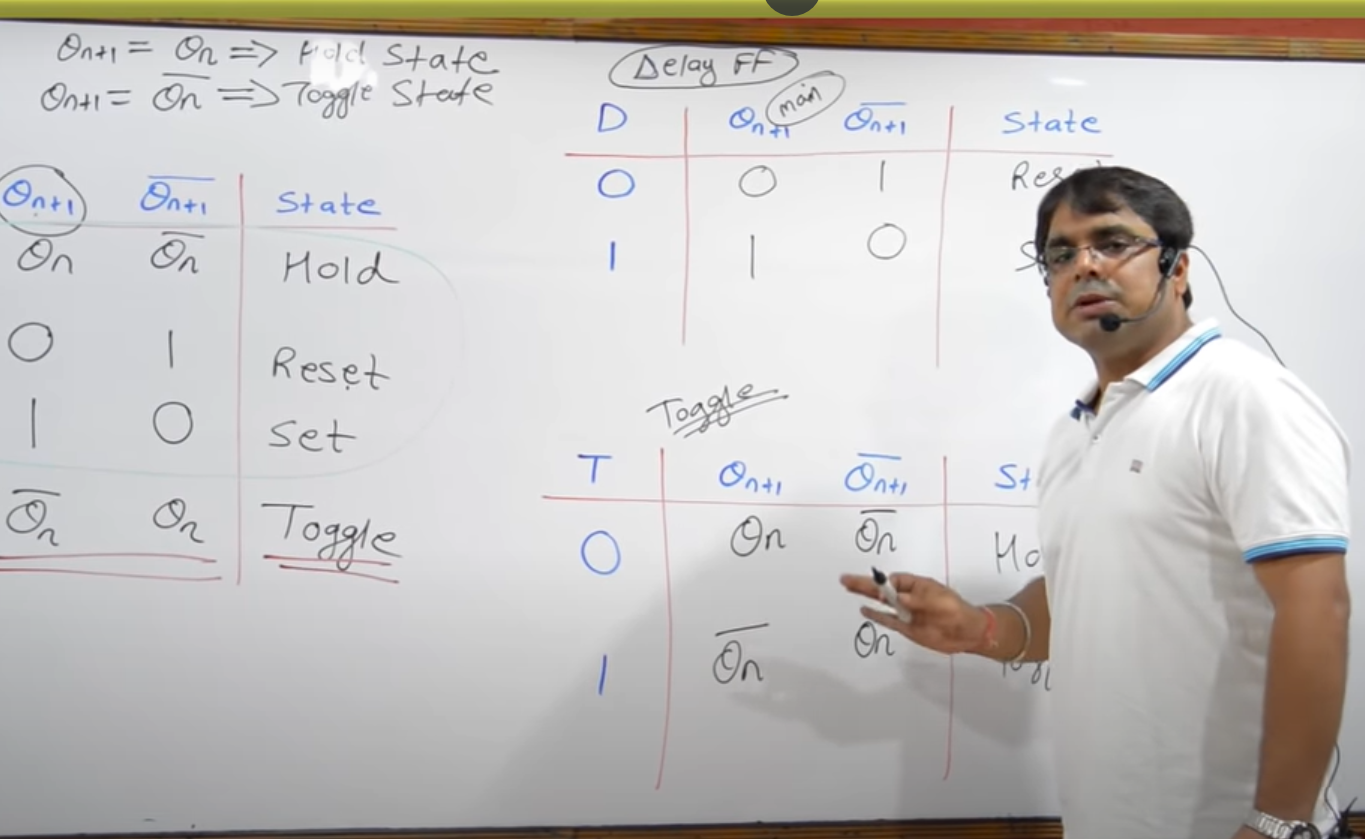 Qn+1 = Qn => Hold State
Qn+1 = Q̅n̅ => Toggle State
Qn+1 Q̅n̅+̅1̅ State
Qn Q̅n̅ Hold
0 1 Reset
1 0 Set
Q̅n̅ Qn Toggle
Delay FF
main
D Qn+1 Q̅n̅+̅1̅ State
0 0 1
1 1 0
Toggle
T Qn+1 Q̅n̅+̅1̅
0 Qn Q̅n̅
1 Q̅n̅ Qn